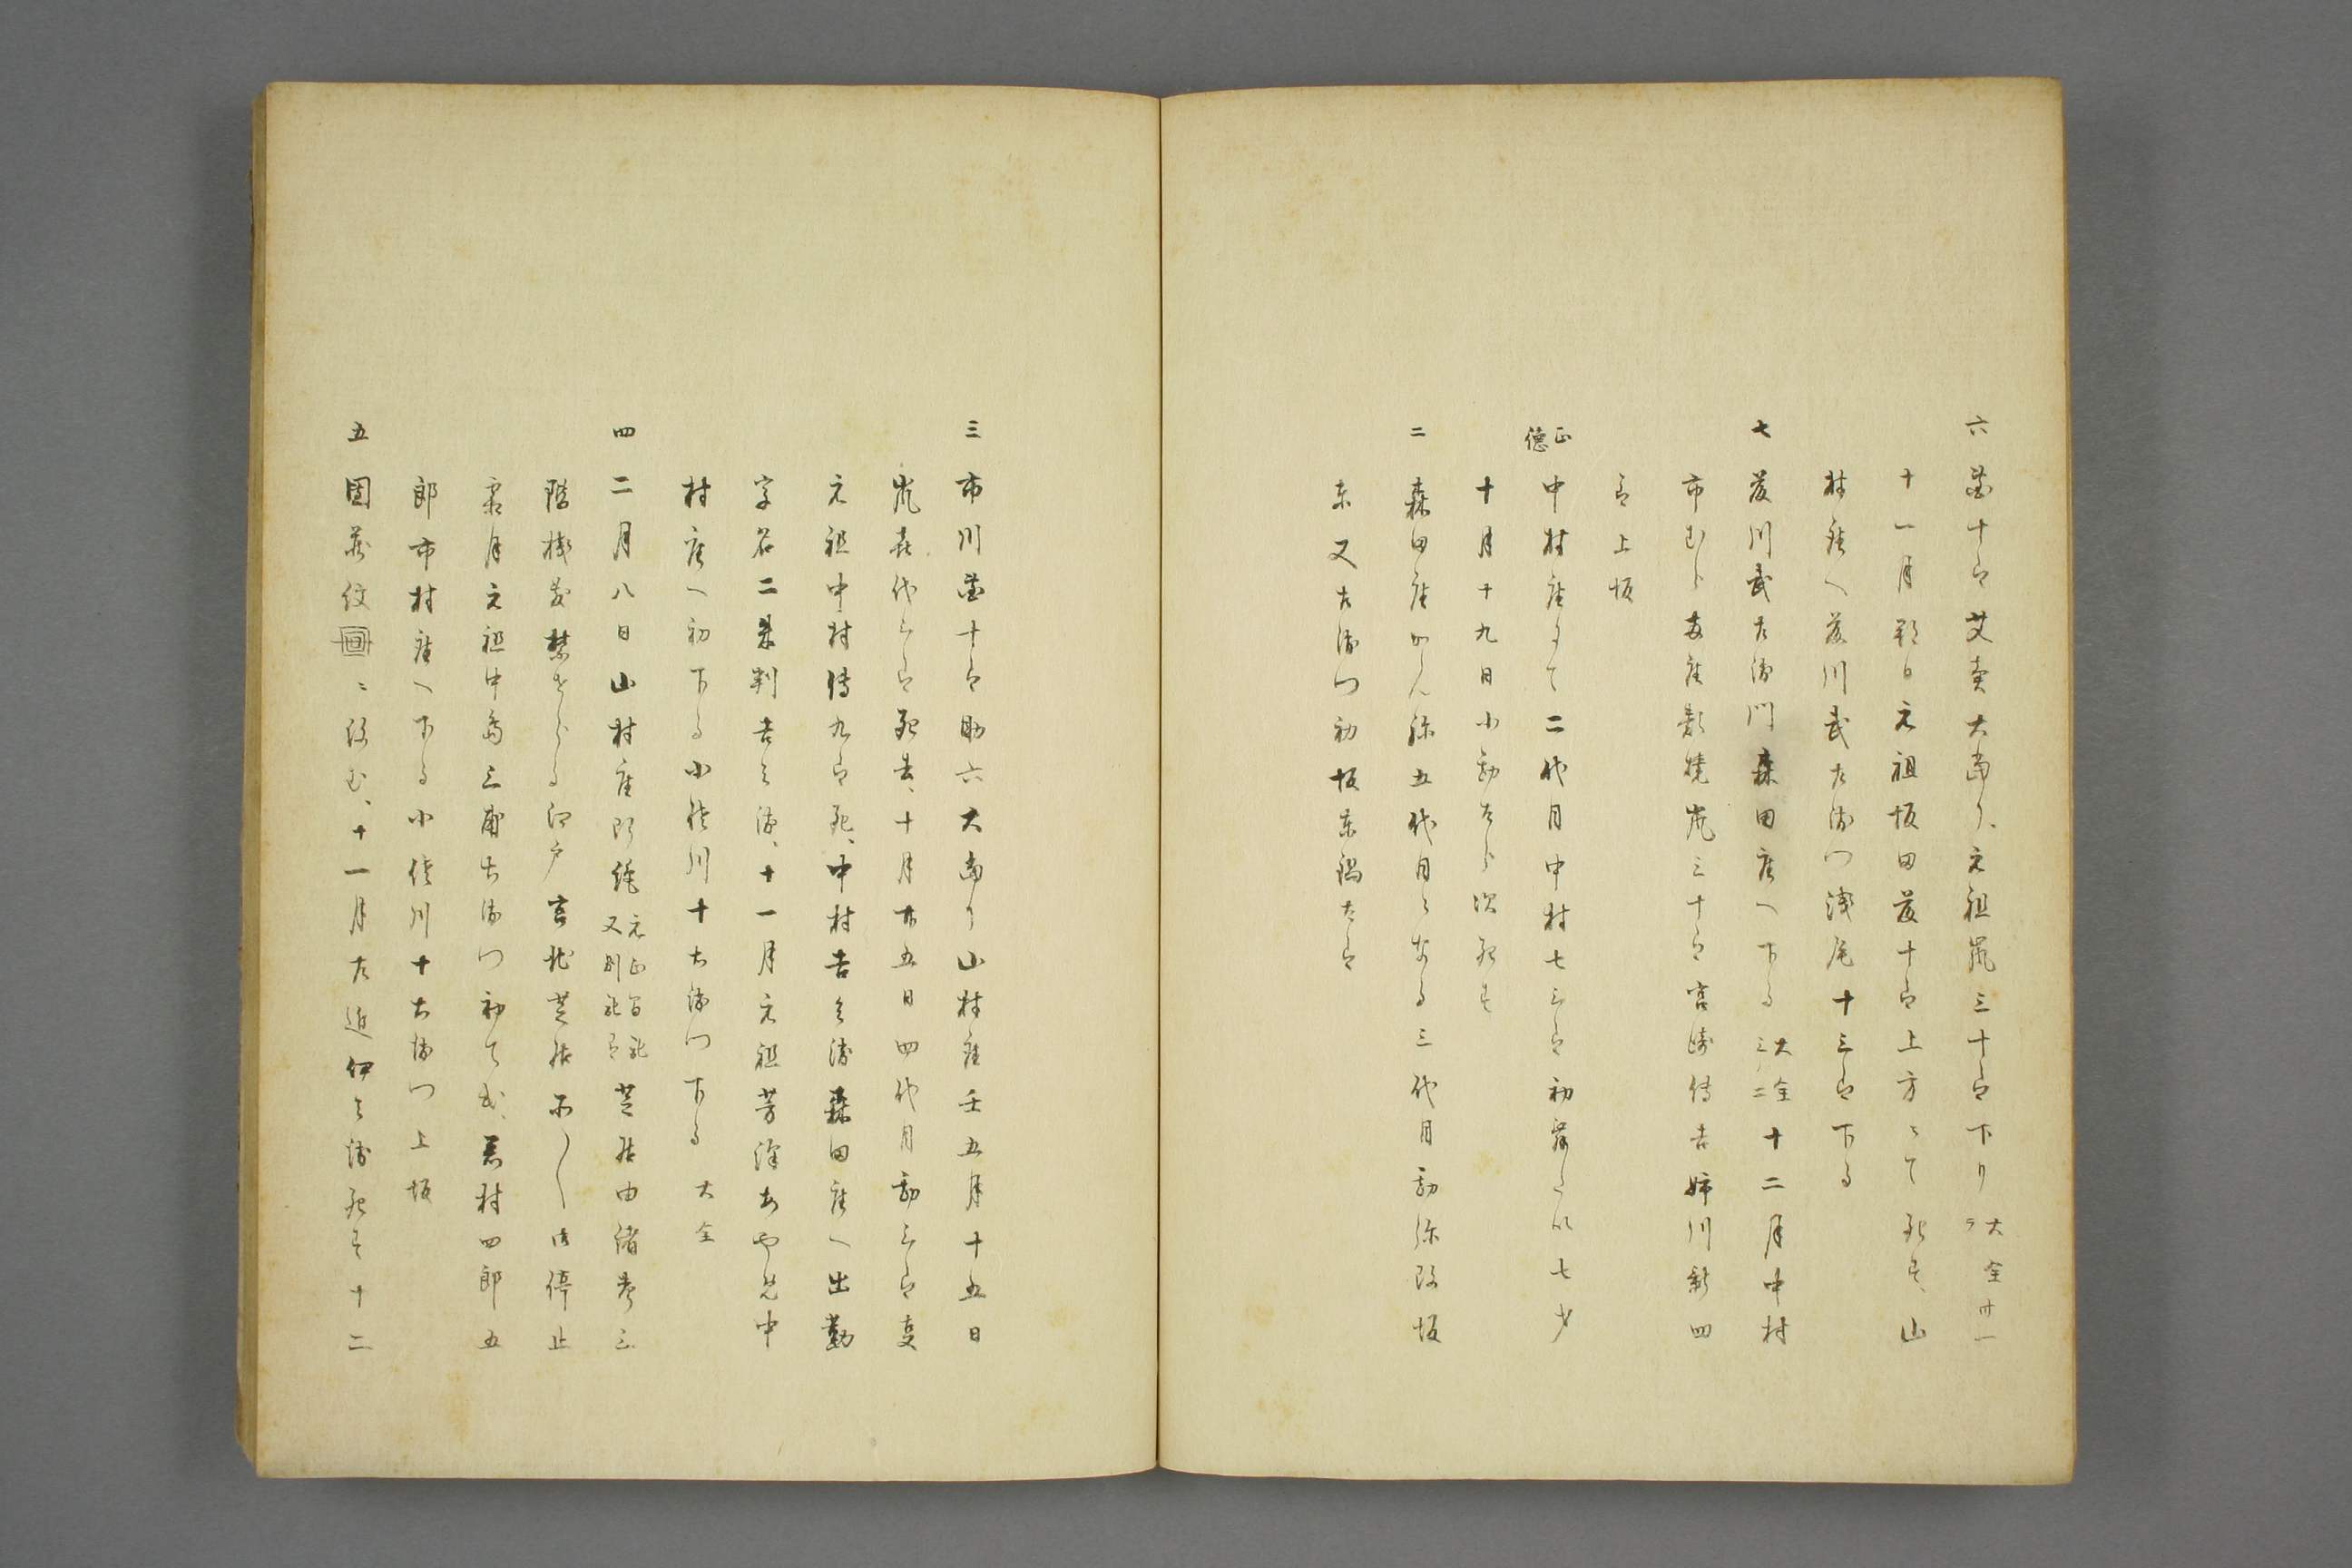 六 團十郎艾賣大當り、元祖嵐三十郎下り 大全廿一
十一月朔日元祖坂田藤十郎上方にて死す、山
村座へ藤川武左衛門浅尾十三郎下る
七 藤川武左衛門森田座へ下る 大全 十二月中村
市むら両座類焼嵐三十郎宮崎傳吉姉川新四
郎上坂
正徳 中村座にて二代目中村七三郎初舞 七才
十月十九日小勘太郎次死す
二 森田座かん弥五代目となる三代目勘弥改坂
東又左衛門初坂東鍋太郎
三 市川團十郎助六大當り山村座壬五月十五日
嵐喜代三郎死去、十月廿五日四代目勘三郎
元祖中村傳九郎死、中村吉兵衛森田座へ出勤
字名二朱判吉兵衛、十一月元祖芳澤あやめ中
村座へ初下る小佐川十右衛門下る 大全
四 二月八日山村座断絶 芝居由緒書ニ
階桟敷禁ぜらる江戸 芝居不 御停止
霜月元祖中島三甫右衛門初て出、若村四郎五
郎市村座へ下る小佐川十右衛門上坂
五 團蔵紋 ニ改む、十一月左近伊兵衛死す十二